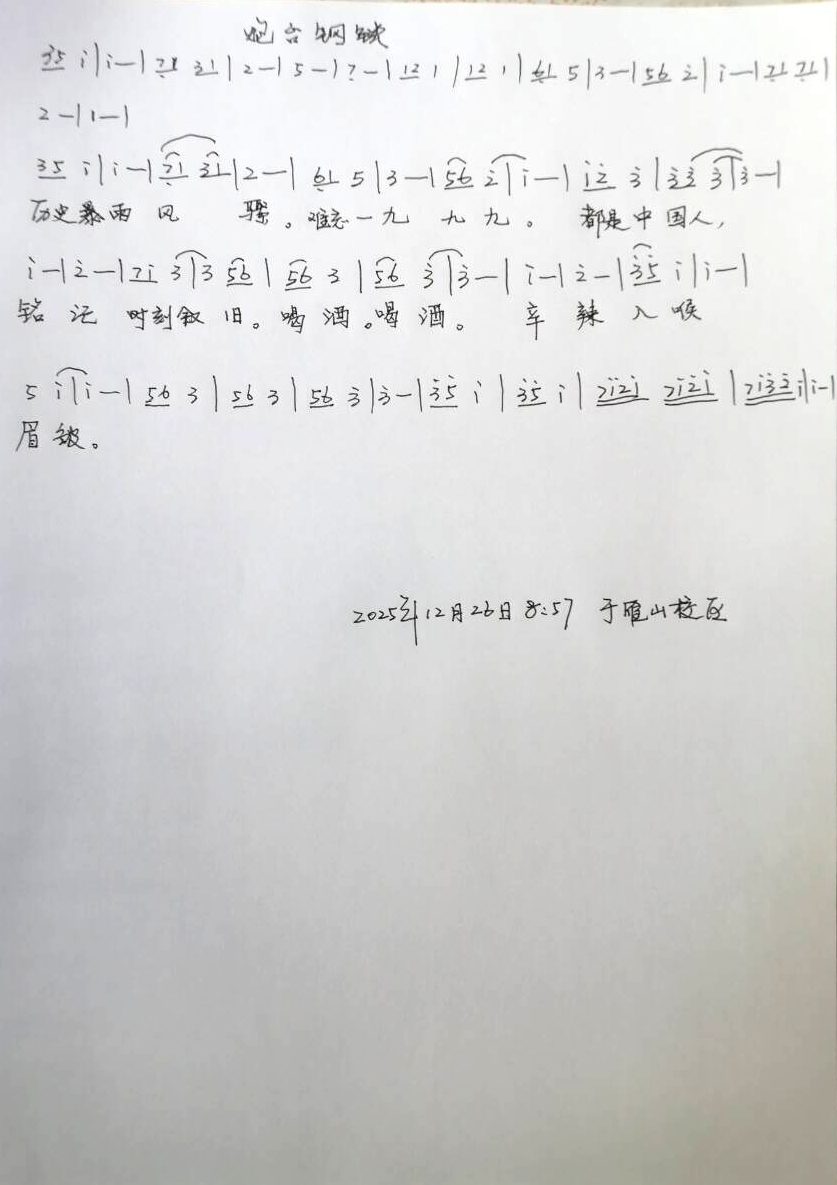 炮台钢铁
35 i | i — | 71 31 | 2 — | 5 — | 7 — | 12 1 | 12 1 | 61 5 | 3 — | 56 2̇ | i — | 71 71 |
2 — | 1 — |
35 i | i — | 71 31 | 2 — | 61 5 | 3 — | 56 2̇ | i — | i2̇ 3̇ | 3̇2̇ 3̇ | 3̇ — |
历史暴雨风 骤。难忘一九 九九。 都是中国人，
i — | 2̇ — | 7i 3̇ | 3 56 | 56 3 | 56 3̇ | 3̇ — | i — | 2̇ — | 3̇5̇ i | i — |
铭记 时刻叙旧。喝酒。喝酒。 辛辣入喉
5 i | i — | 56 3 | 56 3 | 56 3̇ | 3̇ — | 3̇5̇ i | 3̇5̇ i | 7i2̇i 7i2̇i | 7i3̇2̇ i | i — |
眉皱。
2025年12月26日 8:57 于雁山校区